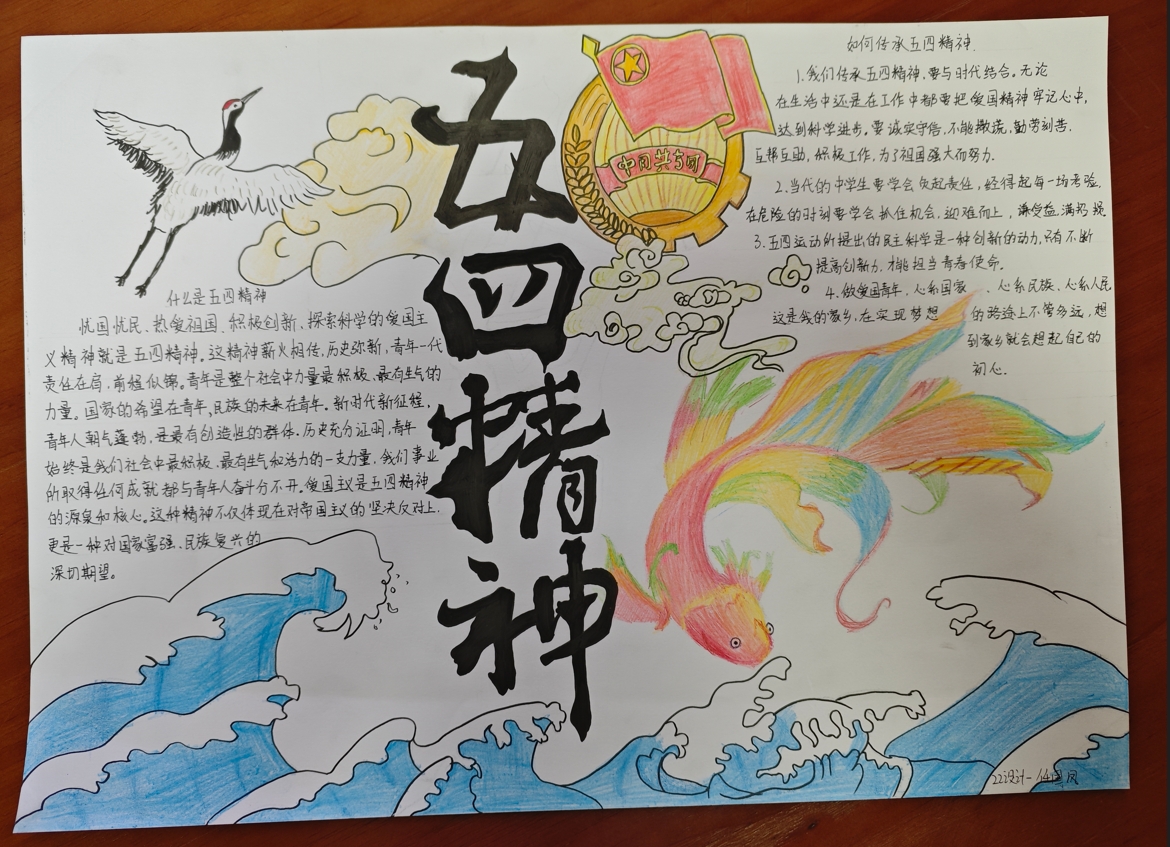 五四精神
中国共青团
什么是五四精神
忧国忧民、热爱祖国、积极创新、探索科学的爱国主
义精神就是五四精神。这精神薪火相传,历史弥新,青年一代
责任在肩,前程似锦。青年是整个社会中力量最积极、最有生气的
力量。国家的希望在青年,民族的未来在青年。新时代新征程,
青年人朝气蓬勃,是最有创造性的群体。历史充分证明,青年
始终是我们社会中最积极、最有生气和活力的一支力量,我们事业
所取得任何成就都与青年人奋斗分不开。爱国主义是五四精神
的源泉和核心。这种精神不仅体现在对帝国主义的坚决反对上,
更是一种对国家富强、民族复兴的
深切期望。
如何传承五四精神
1.我们传承五四精神,要与时代结合。无论
在生活中还是在工作中都要把爱国精神牢记心中,
达到科学进步。要诚实守信,不能撒谎,勤劳刻苦,
互帮互助,积极工作,为了祖国强大而努力.
2.当代的中学生要学会负起责任,经得起每一场考验.
在危险的时刻要学会抓住机会,迎难而上,谦受益,满招损
3.五四运动所提出的民主科学是一种创新的动力,只有不断
提高创新力,才能担当青春使命。
4.做爱国青年,心系国家、心系民族、心系人民
这是我的家乡,在实现梦想的路途上不管多远,想
到家乡就会想起自己的
初心.
22设计一